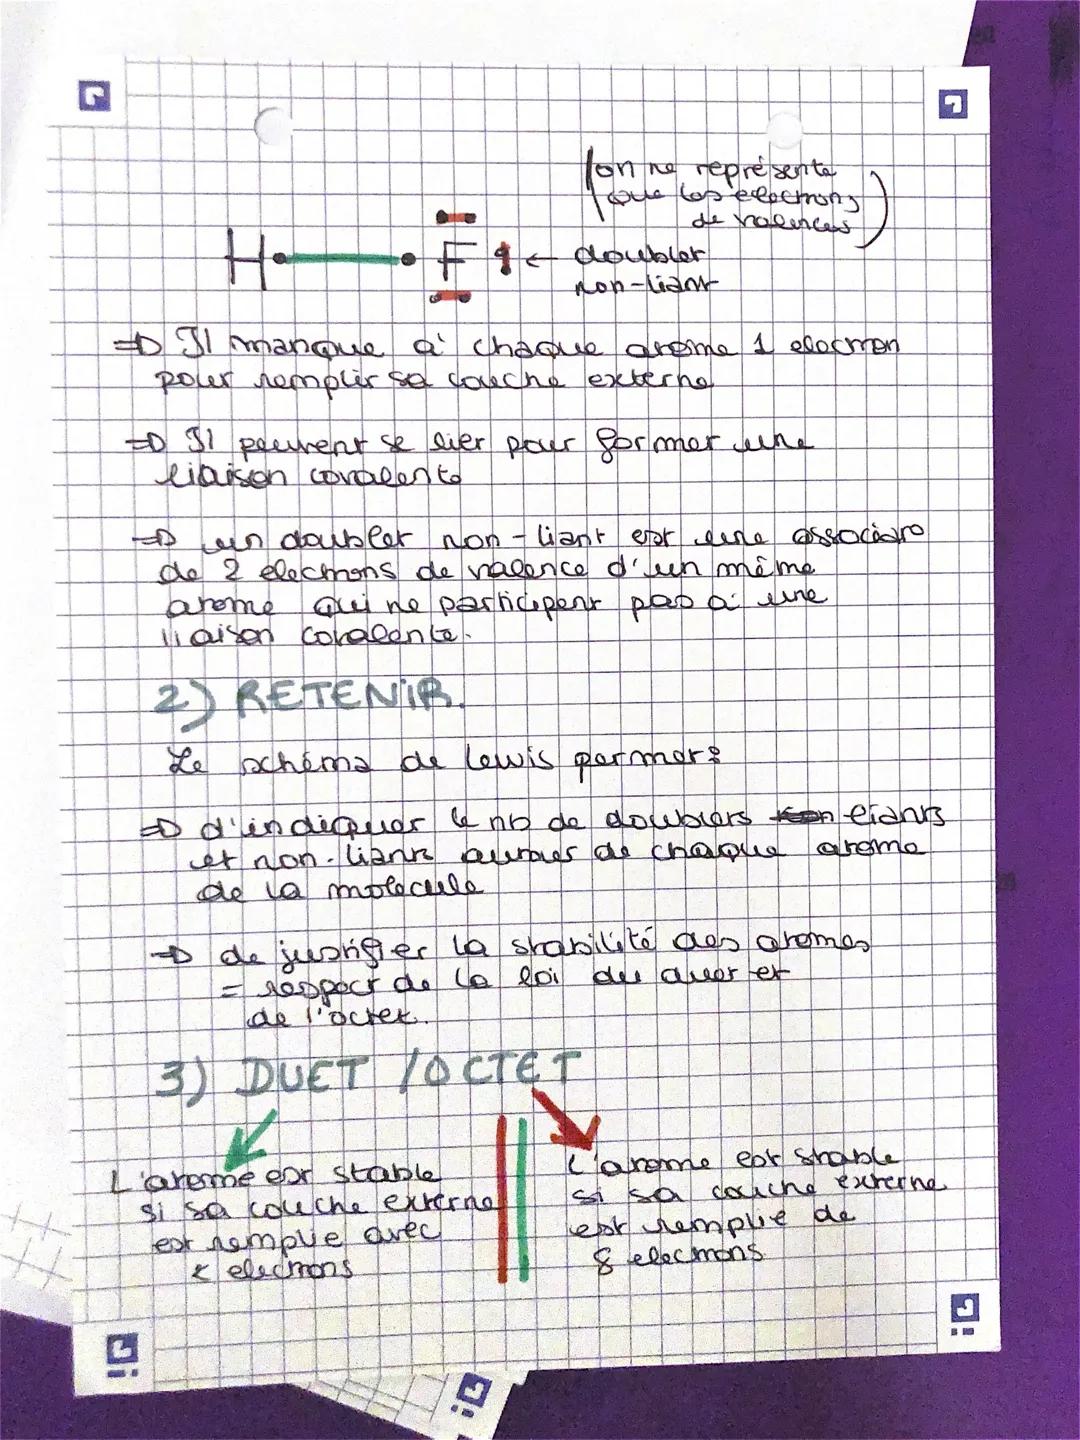 (on ne représente
que les électrons
de valences)
H F ← doublet
non-liant
⇒ Il manque à chaque atome 1 electron
pour remplir sa couche externe
⇒ Il peuvent se lier pour former une
liaison covalente
⇒ un doublet non-liant est une associato
de 2 electrons de valence d'un même
atome qui ne participent pas à une
liaison covalente.
2) RETENIR.
Le schéma de Lewis permet :
⇒ d'indiquer le nb de doublets liants
et non-liants autour de chaque atome
de la molecule
⇒ de justifier la stabilité des atomes
= respect de la loi du duet et
de l'octet.
3) DUET / OCTET
L'atome est stable
si sa couche externe
est remplie avec
2 electrons
L'atome est stable
si sa couche externe
est remplie de
8 electrons